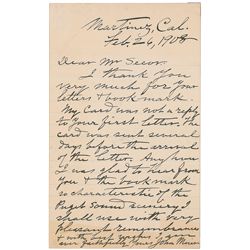 Martinez, Cal.
Feb. 26, 1908
Dear Mr Secor.
I thank you
very much for your
letters & bookmark
My card was not a reply
to your first letter. The
card was sent several
days before the arrival
of the letter. Anyhow
I was glad to hear from
you & the bookmark
so characteristic of the
Puget Sound scenery I
shall use with very
pleasant remembrances
& with good wishes I am
ever faithfully yours John Muir